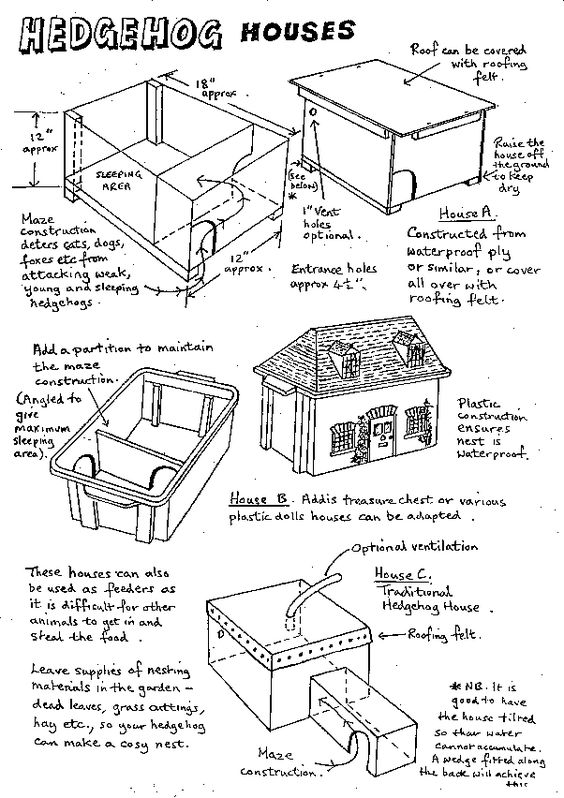 HEDGEHOG HOUSES
Roof can be covered
with roofing
felt.
18"
approx.
12"
approx
SLEEPING
AREA
(see
below)
*
Raise the
house off
the ground
to keep
dry
Maze
construction
deters cats, dogs,
foxes etc from
attacking weak,
young and sleeping
hedgehogs.
12"
approx.
1" Vent
holes
optional.
Entrance holes
approx 4½".
House A.
Constructed from
waterproof ply
or similar, or cover
all over with
roofing felt.
Add a partition to maintain
the maze
construction.
(Angled to
give
maximum
sleeping
area).
Plastic
construction
ensures
nest is
waterproof.
House B. Addis treasure chest or various
plastic dolls houses can be adapted.
These houses can also
be used as feeders as
it is difficult for other
animals to get in and
steal the food.
Leave supplies of nesting
materials in the garden -
dead leaves, grass cuttings,
hay etc., so your hedgehog
can make a cosy nest.
Optional ventilation
House C.
Traditional
Hedgehog House.
Roofing felt.
Maze
construction.
* NB. It is
good to have
the house tilted
so that water
cannot accumulate.
A wedge fitted along
the back will achieve
this